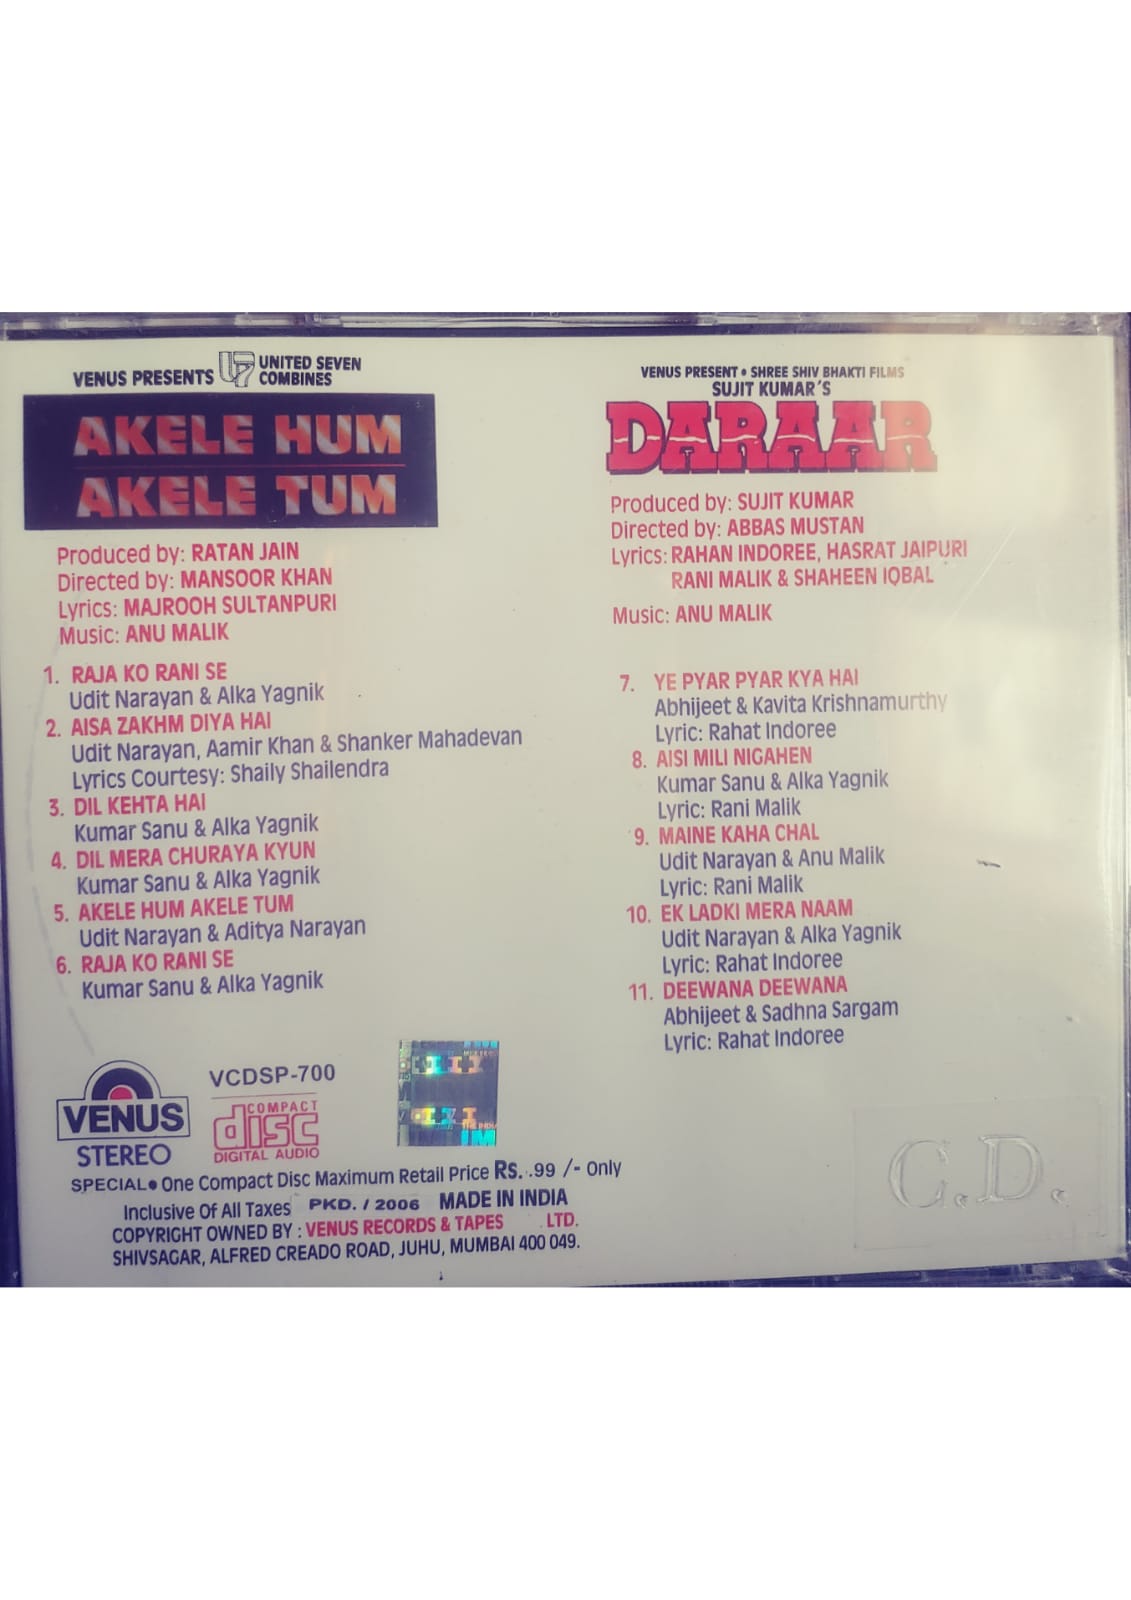 VENUS PRESENTS U7 UNITED SEVEN COMBINES
AKELE HUM
AKELE TUM
Produced by: RATAN JAIN
Directed by: MANSOOR KHAN
Lyrics: MAJROOH SULTANPURI
Music: ANU MALIK
1. RAJA KO RANI SE
Udit Narayan & Alka Yagnik
2. AISA ZAKHM DIYA HAI
Udit Narayan, Aamir Khan & Shanker Mahadevan
Lyrics Courtesy: Shaily Shailendra
3. DIL KEHTA HAI
Kumar Sanu & Alka Yagnik
4. DIL MERA CHURAYA KYUN
Kumar Sanu & Alka Yagnik
5. AKELE HUM AKELE TUM
Udit Narayan & Aditya Narayan
6. RAJA KO RANI SE
Kumar Sanu & Alka Yagnik
VENUS PRESENT • SHREE SHIV BHAKTI FILMS
SUJIT KUMAR'S
DARAAR
Produced by: SUJIT KUMAR
Directed by: ABBAS MUSTAN
Lyrics: RAHAN INDOREE, HASRAT JAIPURI
RANI MALIK & SHAHEEN IQBAL
Music: ANU MALIK
7. YE PYAR PYAR KYA HAI
Abhijeet & Kavita Krishnamurthy
Lyric: Rahat Indoree
8. AISI MILI NIGAHEN
Kumar Sanu & Alka Yagnik
Lyric: Rani Malik
9. MAINE KAHA CHAL
Udit Narayan & Anu Malik
Lyric: Rani Malik
10. EK LADKI MERA NAAM
Udit Narayan & Alka Yagnik
Lyric: Rahat Indoree
11. DEEWANA DEEWANA
Abhijeet & Sadhna Sargam
Lyric: Rahat Indoree
VENUS
STEREO
VCDSP-700
COMPACT
disc
DIGITAL AUDIO
SPECIAL• One Compact Disc Maximum Retail Price Rs. .99 /- Only
Inclusive Of All Taxes PKD. / 2006 MADE IN INDIA
COPYRIGHT OWNED BY : VENUS RECORDS & TAPES LTD.
SHIVSAGAR, ALFRED CREADO ROAD, JUHU, MUMBAI 400 049.
C.D.